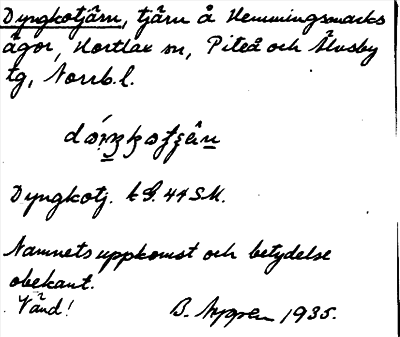 Dyngkotjärn, tjärn å Hemmingsmarks
ägor, Hortlax sn, Piteå och Älvsby
tg, Norrb. l.
Dyngkotj. k G. 44 SM.
Namnets uppkomst och betydelse
obekant.
Vänd! B. Nygren 1935.